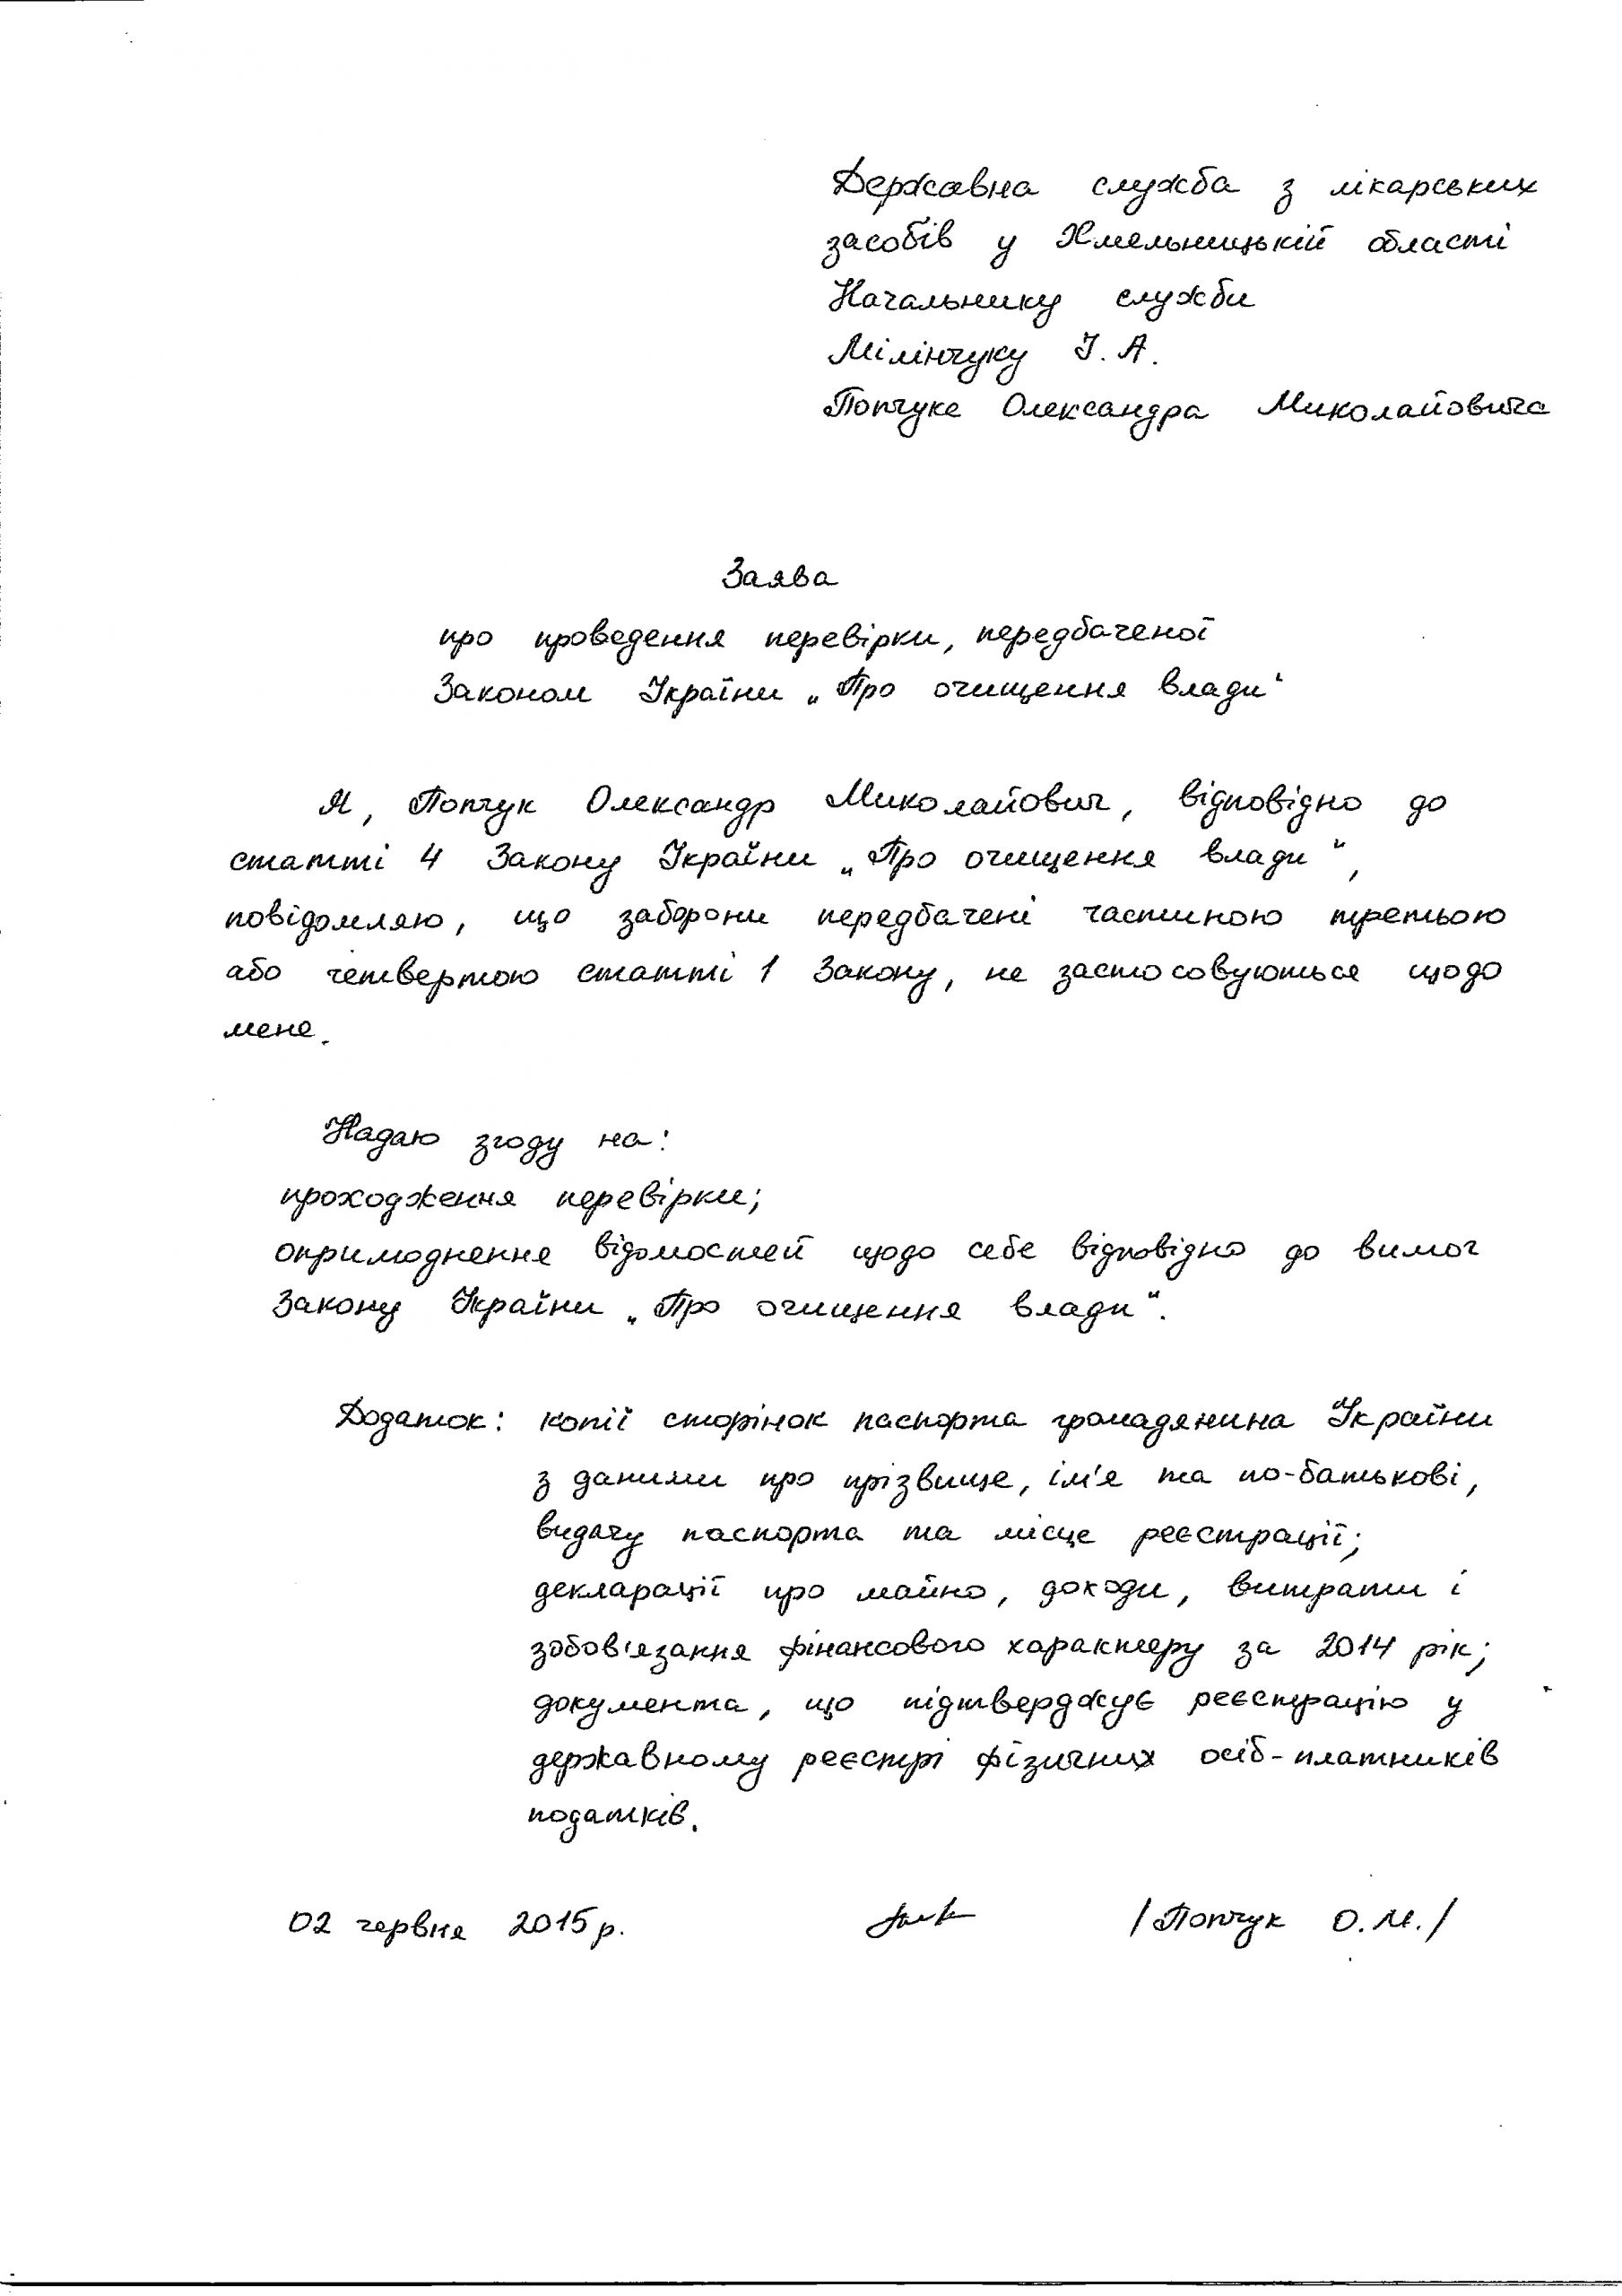 Державна служба з лікарських
засобів у Хмельницькій області
Начальнику служби
Мілінчуку І. А.
Попчука Олександра Миколайовича
Заява
про проведення перевірки, передбаченої
Законом України „Про очищення влади“
Я, Попчук Олександр Миколайович, відповідно до
статті 4 Закону України „Про очищення влади“,
повідомляю, що заборони передбачені частиною третьою
або четвертою статті 1 Закону, не застосовуються щодо
мене.
Надаю згоду на:
проходження перевірки;
оприлюднення відомостей щодо себе відповідно до вимог
Закону України „Про очищення влади“.
Додаток: копії сторінок паспорта громадянина України
з даними про прізвище, ім'я та по-батькові,
видачу паспорта та місце реєстрації;
декларації про майно, доходи, витрати і
зобов'язання фінансового характеру за 2014 рік;
документа, що підтверджує реєстрацію у
державному реєстрі фізичних осіб-платників
податків.
02 червня 2015 р. /Попчук О. М./